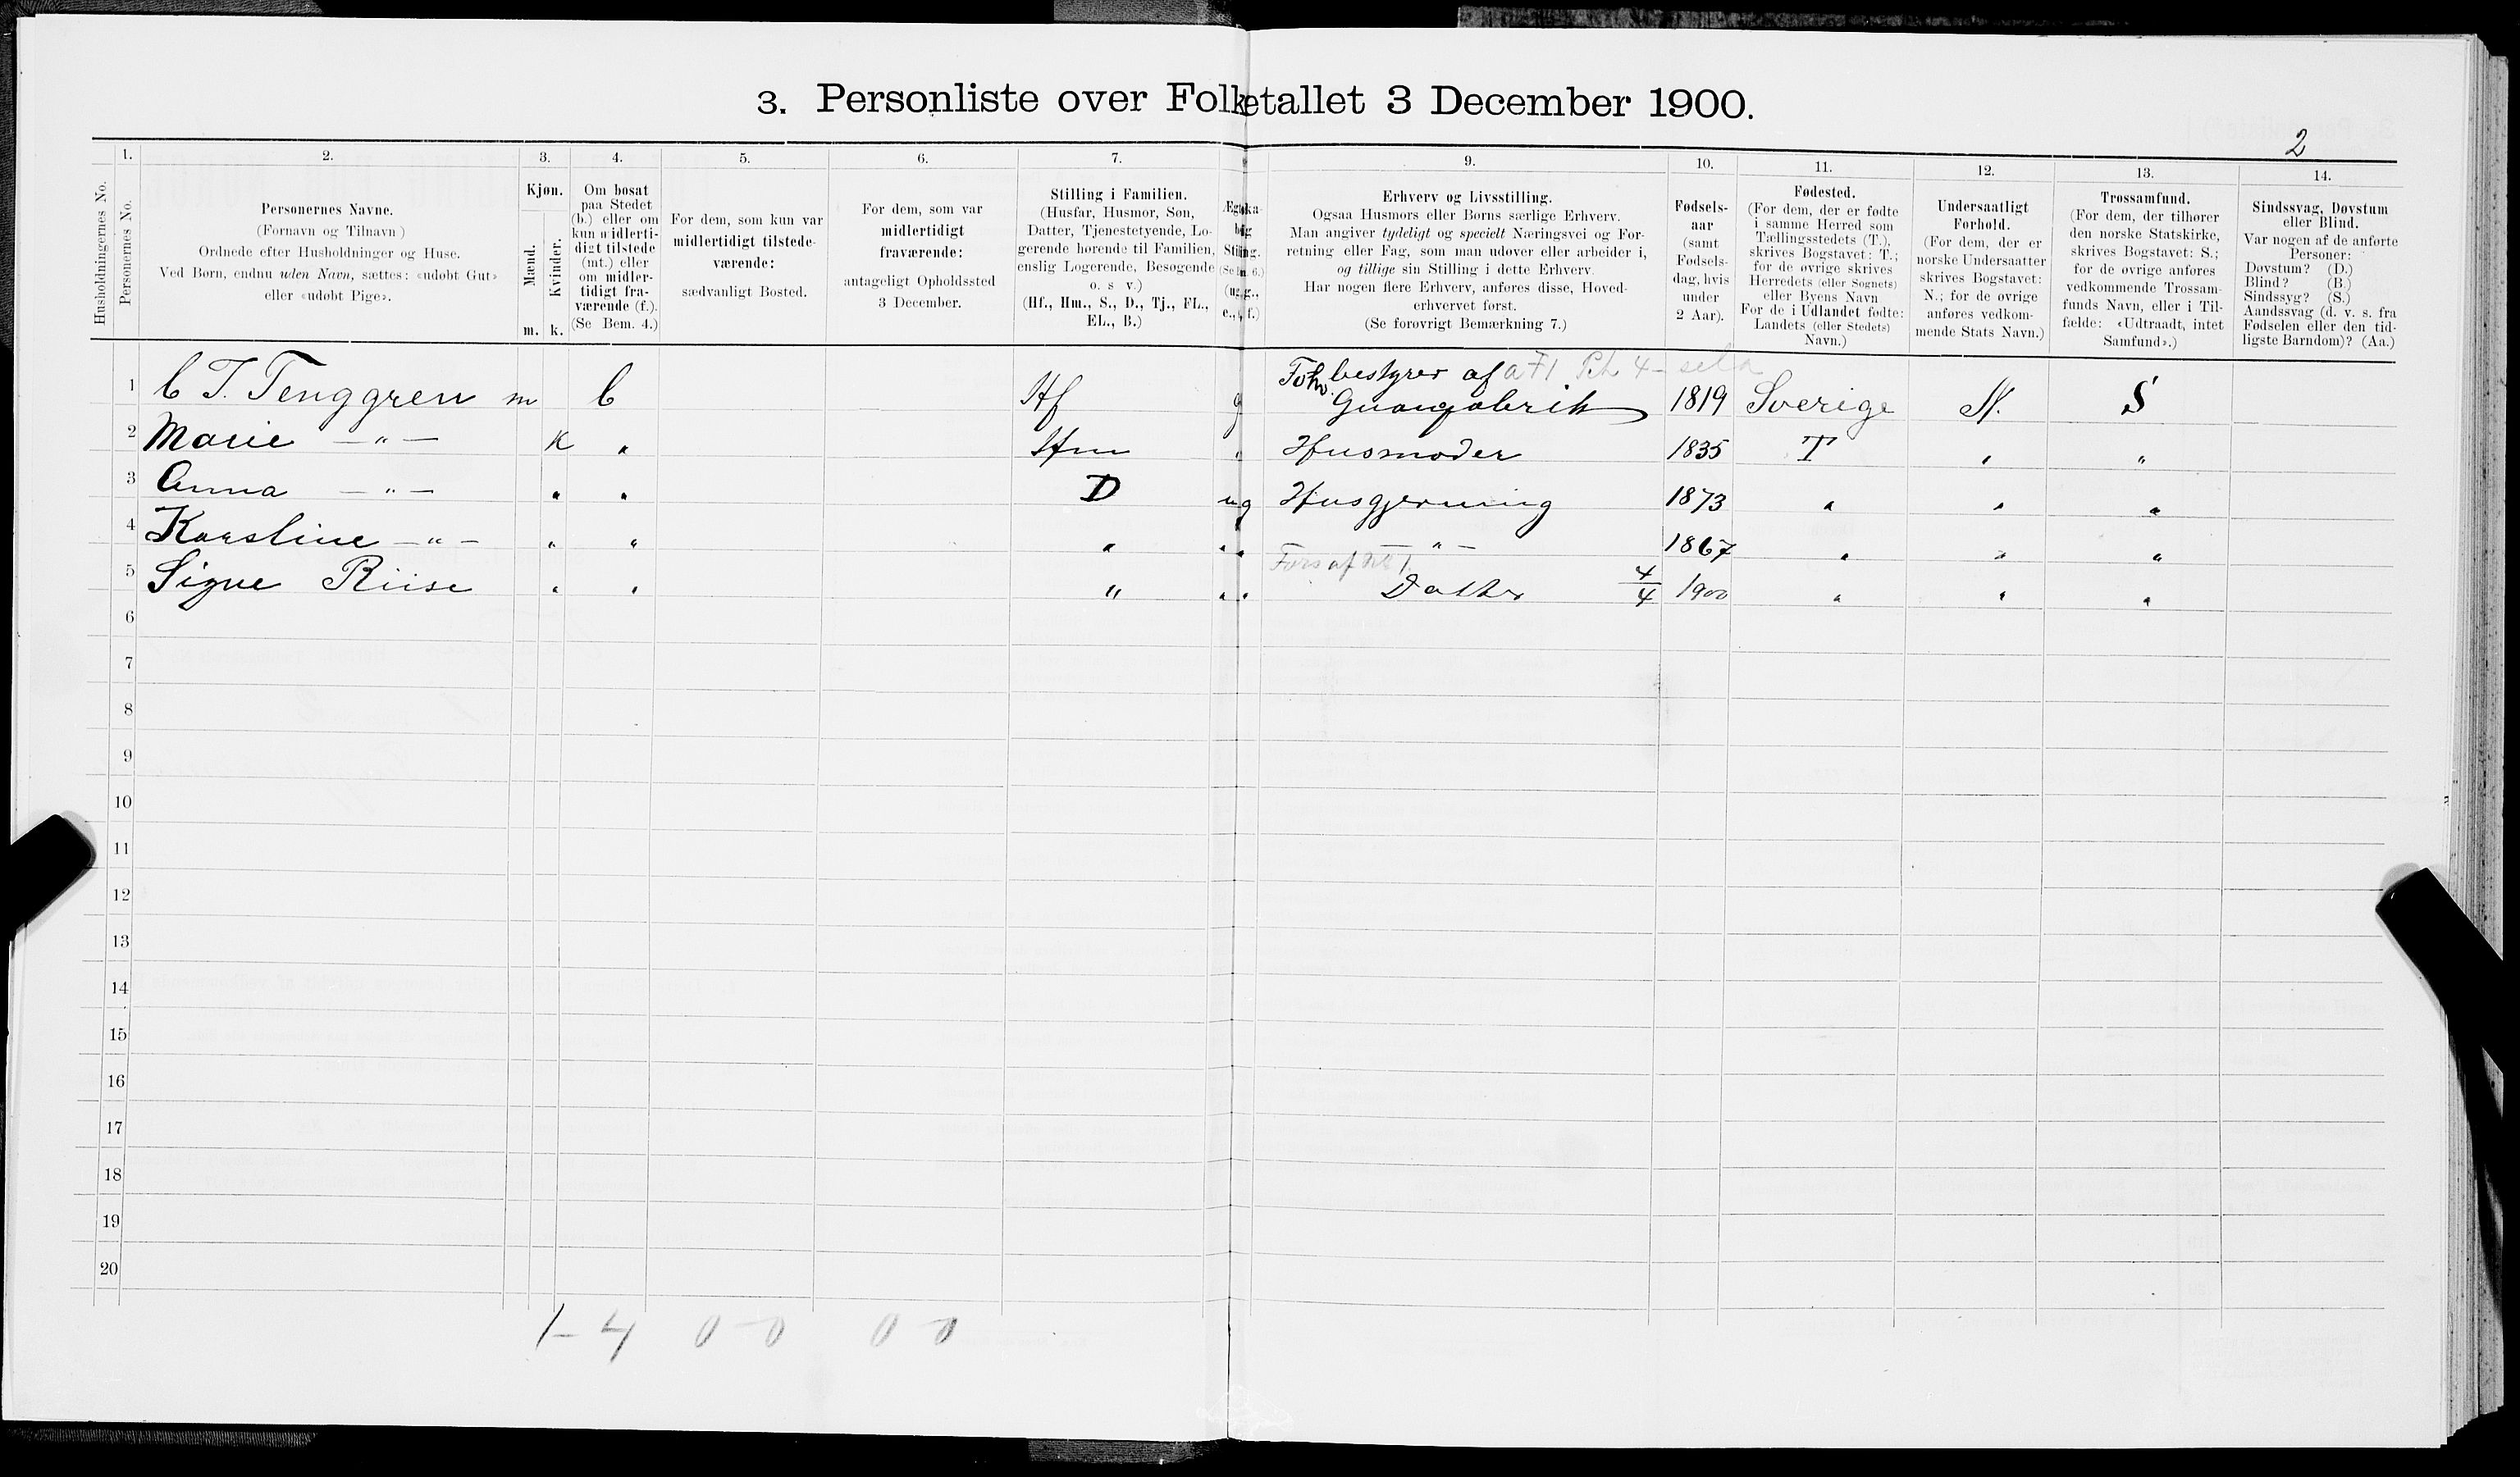 3. Personliste over Folketallet 3 December 1900.
2
Husholdningernes No.
1.
Personernes No.
2.
Personernes Navne.
(Fornavn og Tilnavn)
Ordnede efter Husholdninger og Huse.
Ved Børn, endnu uden Navn, sættes: «udøbt Gut»
eller «udøbt Pige».
3.
Kjøn.
Mænd.
Kvinder.
m. k.
4.
Om bosat
paa Stedet
(b.) eller om
kun midlerti-
digt tilstede
(mt.) eller
om midler-
tidigt fra-
værende (f.).
(Se Bem. 4.)
5.
For dem, som kun var
midlertidigt tilstede-
værende:
sædvanligt Bosted.
6.
For dem, som var
midlertidigt
fraværende:
antageligt Opholdssted
3 December.
7.
Stilling i Familien.
(Husfar, Husmor, Søn,
Datter, Tjenestetyende, Lo-
gerende hørende til Familien,
enslig Logerende, Besøgende
o. s v.)
(Hf., Hm., S., D., Tj., FL.,
EL., B.)
9.
Erhverv og Livsstilling.
Ogsaa Husmors eller Børns særlige Erhverv.
Man angiver tydeligt og specielt Næringsvei og For-
retning eller Fag, som man udøver eller arbeider i,
og tillige sin Stilling i dette Erhverv.
Har nogen flere Erhverv, anføres disse, Hoved-
erhvervet først.
(Se forøvrigt Bemærkning 7.)
10.
Fødsels-
aar
(samt
Fødsels-
dag, hvis
under
2 Aar).
11.
Fødested.
(For dem, der er fødte
i samme Herred som
Tællingsstedets (T.),
skrives Bogstavet: T.;
for de øvrige skrives
Herredets (eller Sognets)
eller Byens Navn
For de i Udlandet fødte:
Landets (eller Stedets)
Navn.)
12.
Undersaatligt
Forhold.
(For dem, der er
norske Undersaatter
skrives Bogstavet:
N.; for de øvrige
anføres vedkom-
mende Stats Navn.)
13.
Trossamfund.
(For dem, der tilhører
den norske Statskirke,
skrives Bogstavet: S.;
for de øvrige anføres
vedkommende Trossam-
funds Navn, eller i Til-
fælde: «Udtraadt, intet
Samfund».)
14.
Sindssvag, Døvstum
eller Blind.
Var nogen af de anførte
Personer:
Døvstum? (D.)
Blind? (B.)
Sindssyg? (S.)
Aandssvag (d. v. s. fra
Fødselen eller den tid-
ligste Barndom)? (Aa.)
1 C T. Tenggren m b Hf g bestyrer af Guanofabrik 1819 Sverige N. S
2 Marie —"— K " Hm " Husmoder 1835 T " "
3 Anna —"— " " D ug Husgjerning 1873 " " "
4 Karsline —"— " " " " —"— 1867 " " "
5 Signe Riise " " " " Datter 4/4 1900 " " "
6
7
8
9
10
11
12
13
14
15
16
17
18
19
20
1 – 4 0 – 0 0 0